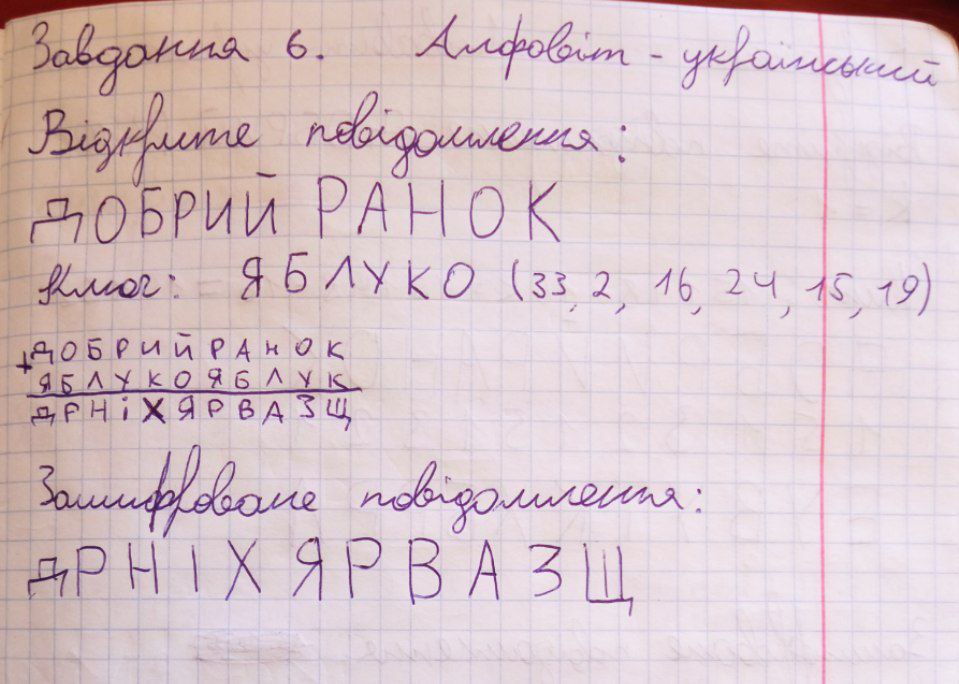 Завдання 6. Алфавіт - український
Відкрите повідомлення:
ДОБРИЙ РАНОК
Ключ: ЯБЛУКО (33, 2, 16, 24, 15, 19)
+ДОБРИЙРАНОК
ЯБЛУКОЯБЛУК
ДРНіХЯРВАЗЩ
Зашифроване повідомлення:
ДРНІХЯРВАЗЩ